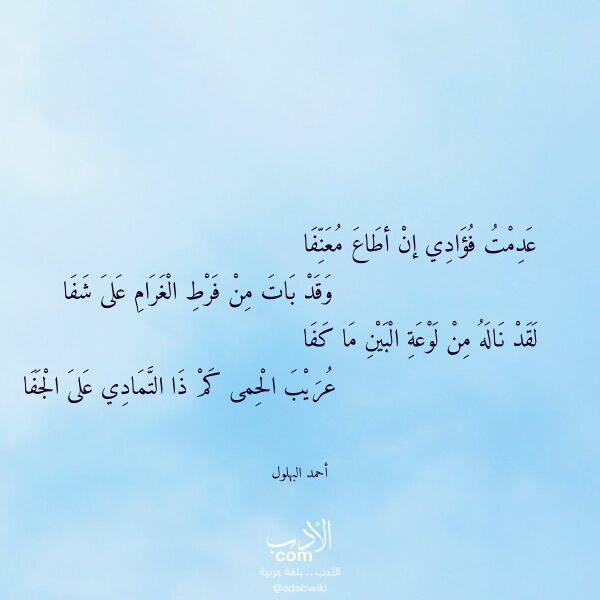 عَدِمْتُ فُؤَادِي إنْ أطَاعَ مُعَنِّفَا
وَقَدْ بَاتَ مِنْ فَرْطِ الْغَرَامِ عَلىَ شَفَا
لَقَدْ نَالَهُ مِنْ لَوْعَةِ الْبَيْنِ مَا كَفَا
عُرَيْبَ الْحِمى كَمْ ذَا التَّمَادِي عَلىَ الْجَفَا
أحمد البهلول
الأدب
.com
الأدب .. بلغة عربية
@adabwiki